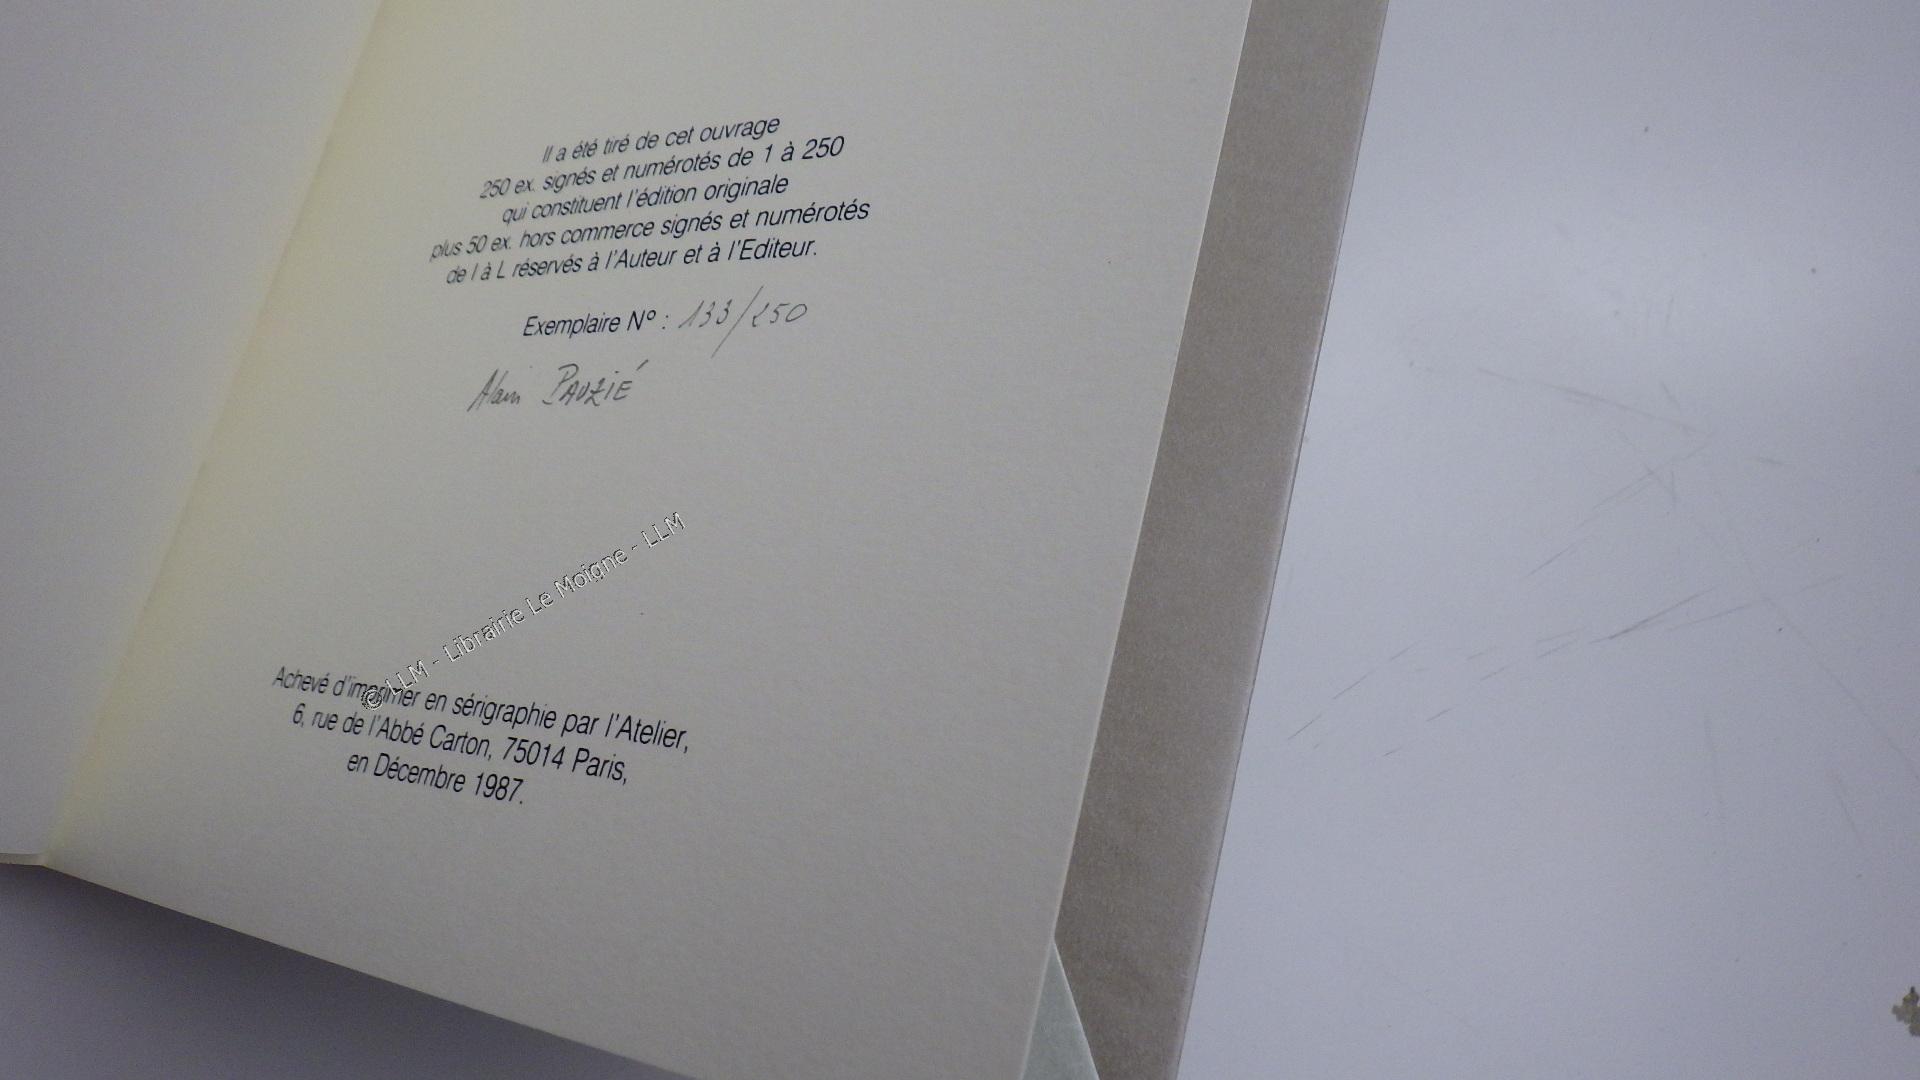 Il a été tiré de cet ouvrage
250 ex. signés et numérotés de 1 à 250
qui constituent l'édition originale
plus 50 ex. hors commerce signés et numérotés
de I à L réservés à l'Auteur et à l'Editeur.
Exemplaire Nº : 133/250
Alain PAUZIÉ
© LLM - Librairie Le Moigne - LLM
Achevé d'imprimer en sérigraphie par l'Atelier,
6, rue de l'Abbé Carton, 75014 Paris,
en Décembre 1987.